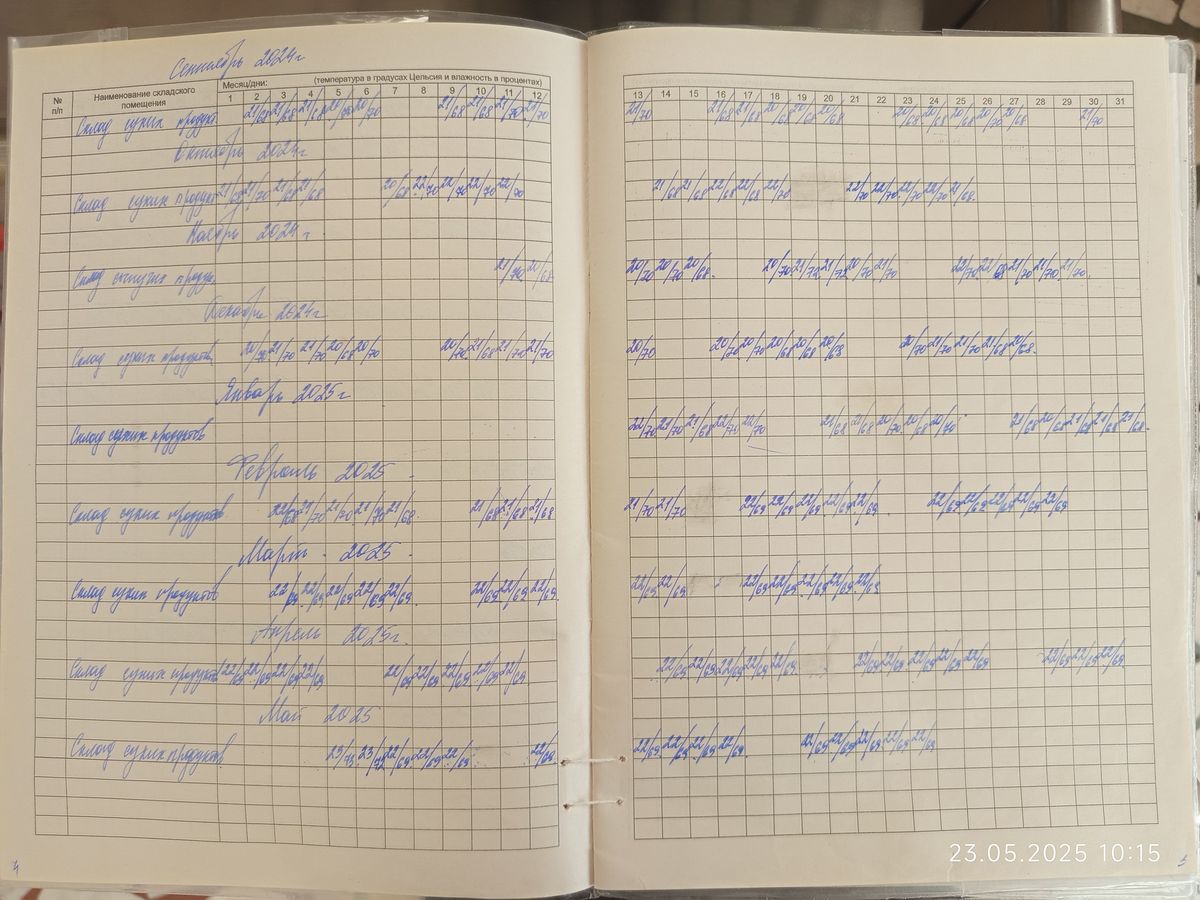 Сентябрь 2024г
№ п/п
Наименование складского помещения
Месяц/дни: (температура в градусах Цельсия и влажность в процентах)
1 2 3 4 5 6 7 8 9 10 11 12
13 14 15 16 17 18 19 20 21 22 23 24 25 26 27 28 29 30 31
Склад сухих продукт 21/68 21/68 21/68 20/70 21/68 21/68 21/70 21/70
21/70 21/68 21/68 20/68 20/68 20/68 20/68 20/68 20/68 20/70 20/68 21/70
Октябрь 2024г
Склад сухих продукт 21/68 21/70 21/68 21/68 20/68 22/70 22/70 22/70 22/70
21/68 21/68 22/68 22/68 22/70 22/70 22/70 22/70 22/70 21/68
Ноябрь 2024г.
Склад сыпучих продук. 21/70 20/68
20/70 20/70 20/68 20/70 21/72 21/72 20/70 21/70 22/70 22/68 21/70 21/70 21/70
Декабрь 2024г
Склад сухих продуктов 20/70 21/70 21/70 20/68 20/70 20/70 21/68 21/70 21/70
20/70 20/70 20/70 20/68 20/68 20/68 20/70 21/70 21/70 21/68 20/68
Январь 2025г
Склад сухих продуктов
22/70 21/70 21/68 22/70 20/70 21/68 21/68 20/70 20/68 20/70 21/68 20/68 21/68 21/68 21/68
Февраль 2025
Склад сухих продуктов 22/68 21/70 21/70 21/70 21/68 21/68 21/68 21/68
21/70 21/70 22/69 22/69 22/69 22/69 22/69 22/69 22/69 22/69 22/69 22/69
Март 2025
Склад сухих продуктов 22/69 22/69 22/69 22/69 22/69 22/69 22/69 22/69
22/69 22/69 22/69 22/69 22/69 22/69 22/69
Апрель 2025г.
Склад сухих продуктов 22/69 22/69 22/69 22/69 22/69 22/69 22/69 22/69 22/69
22/69 22/69 22/69 22/69 22/69 22/69 22/69 22/69 22/69 22/69 22/69 22/69 22/69
Май 2025
Склад сухих продуктов 23/73 23/72 22/69 22/69 22/69 22/69
22/69 22/69 22/69 22/69 22/69 22/69 22/69 22/69 22/69
4
5
23.05.2025 10:15